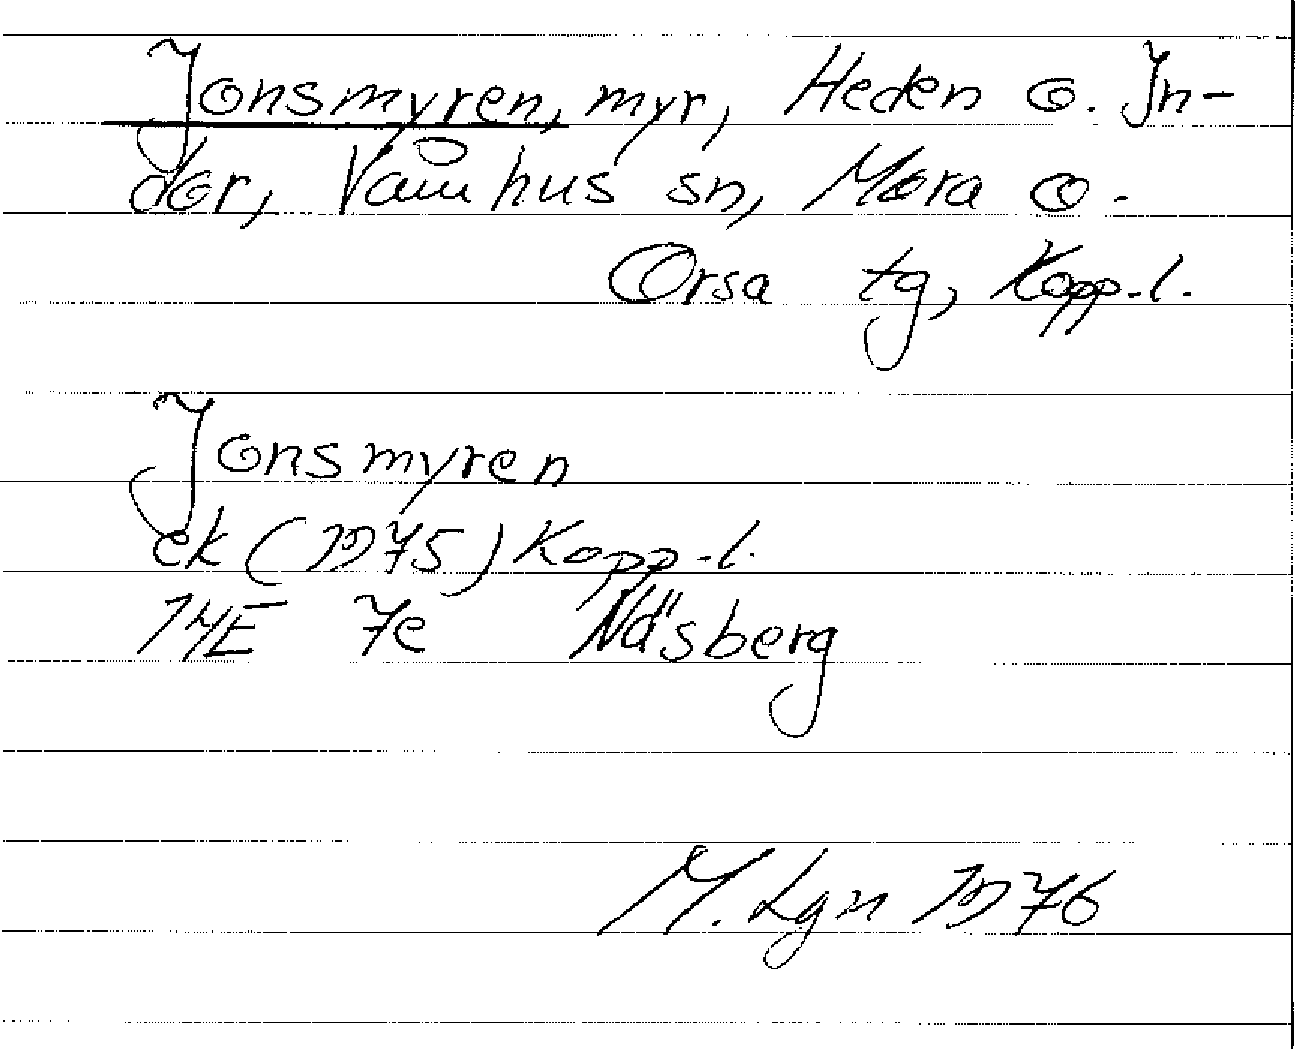 Jonsmyren, myr, Heden o. In-
dor, Våmhus sn, Mora o.
Orsa tg, Kopp.l.
Jonsmyren
ek (1975) Kopp.l.
14E 7e Näsberg
M. Lgn 1976